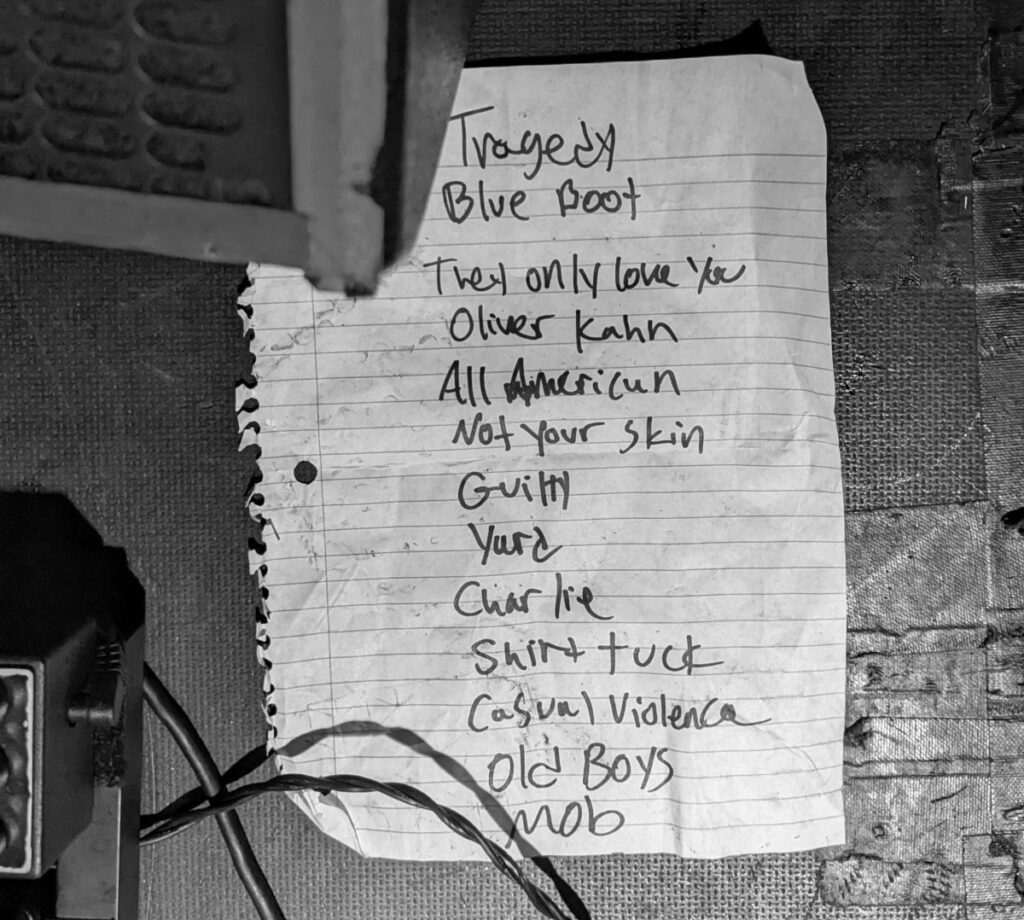 Tragedy
Blue Boot
They only love You
Oliver Kahn
All American
Not your skin
Guilty
Yard
Charlie
Shirt tuck
Casual Violence
Old Boys
Mob